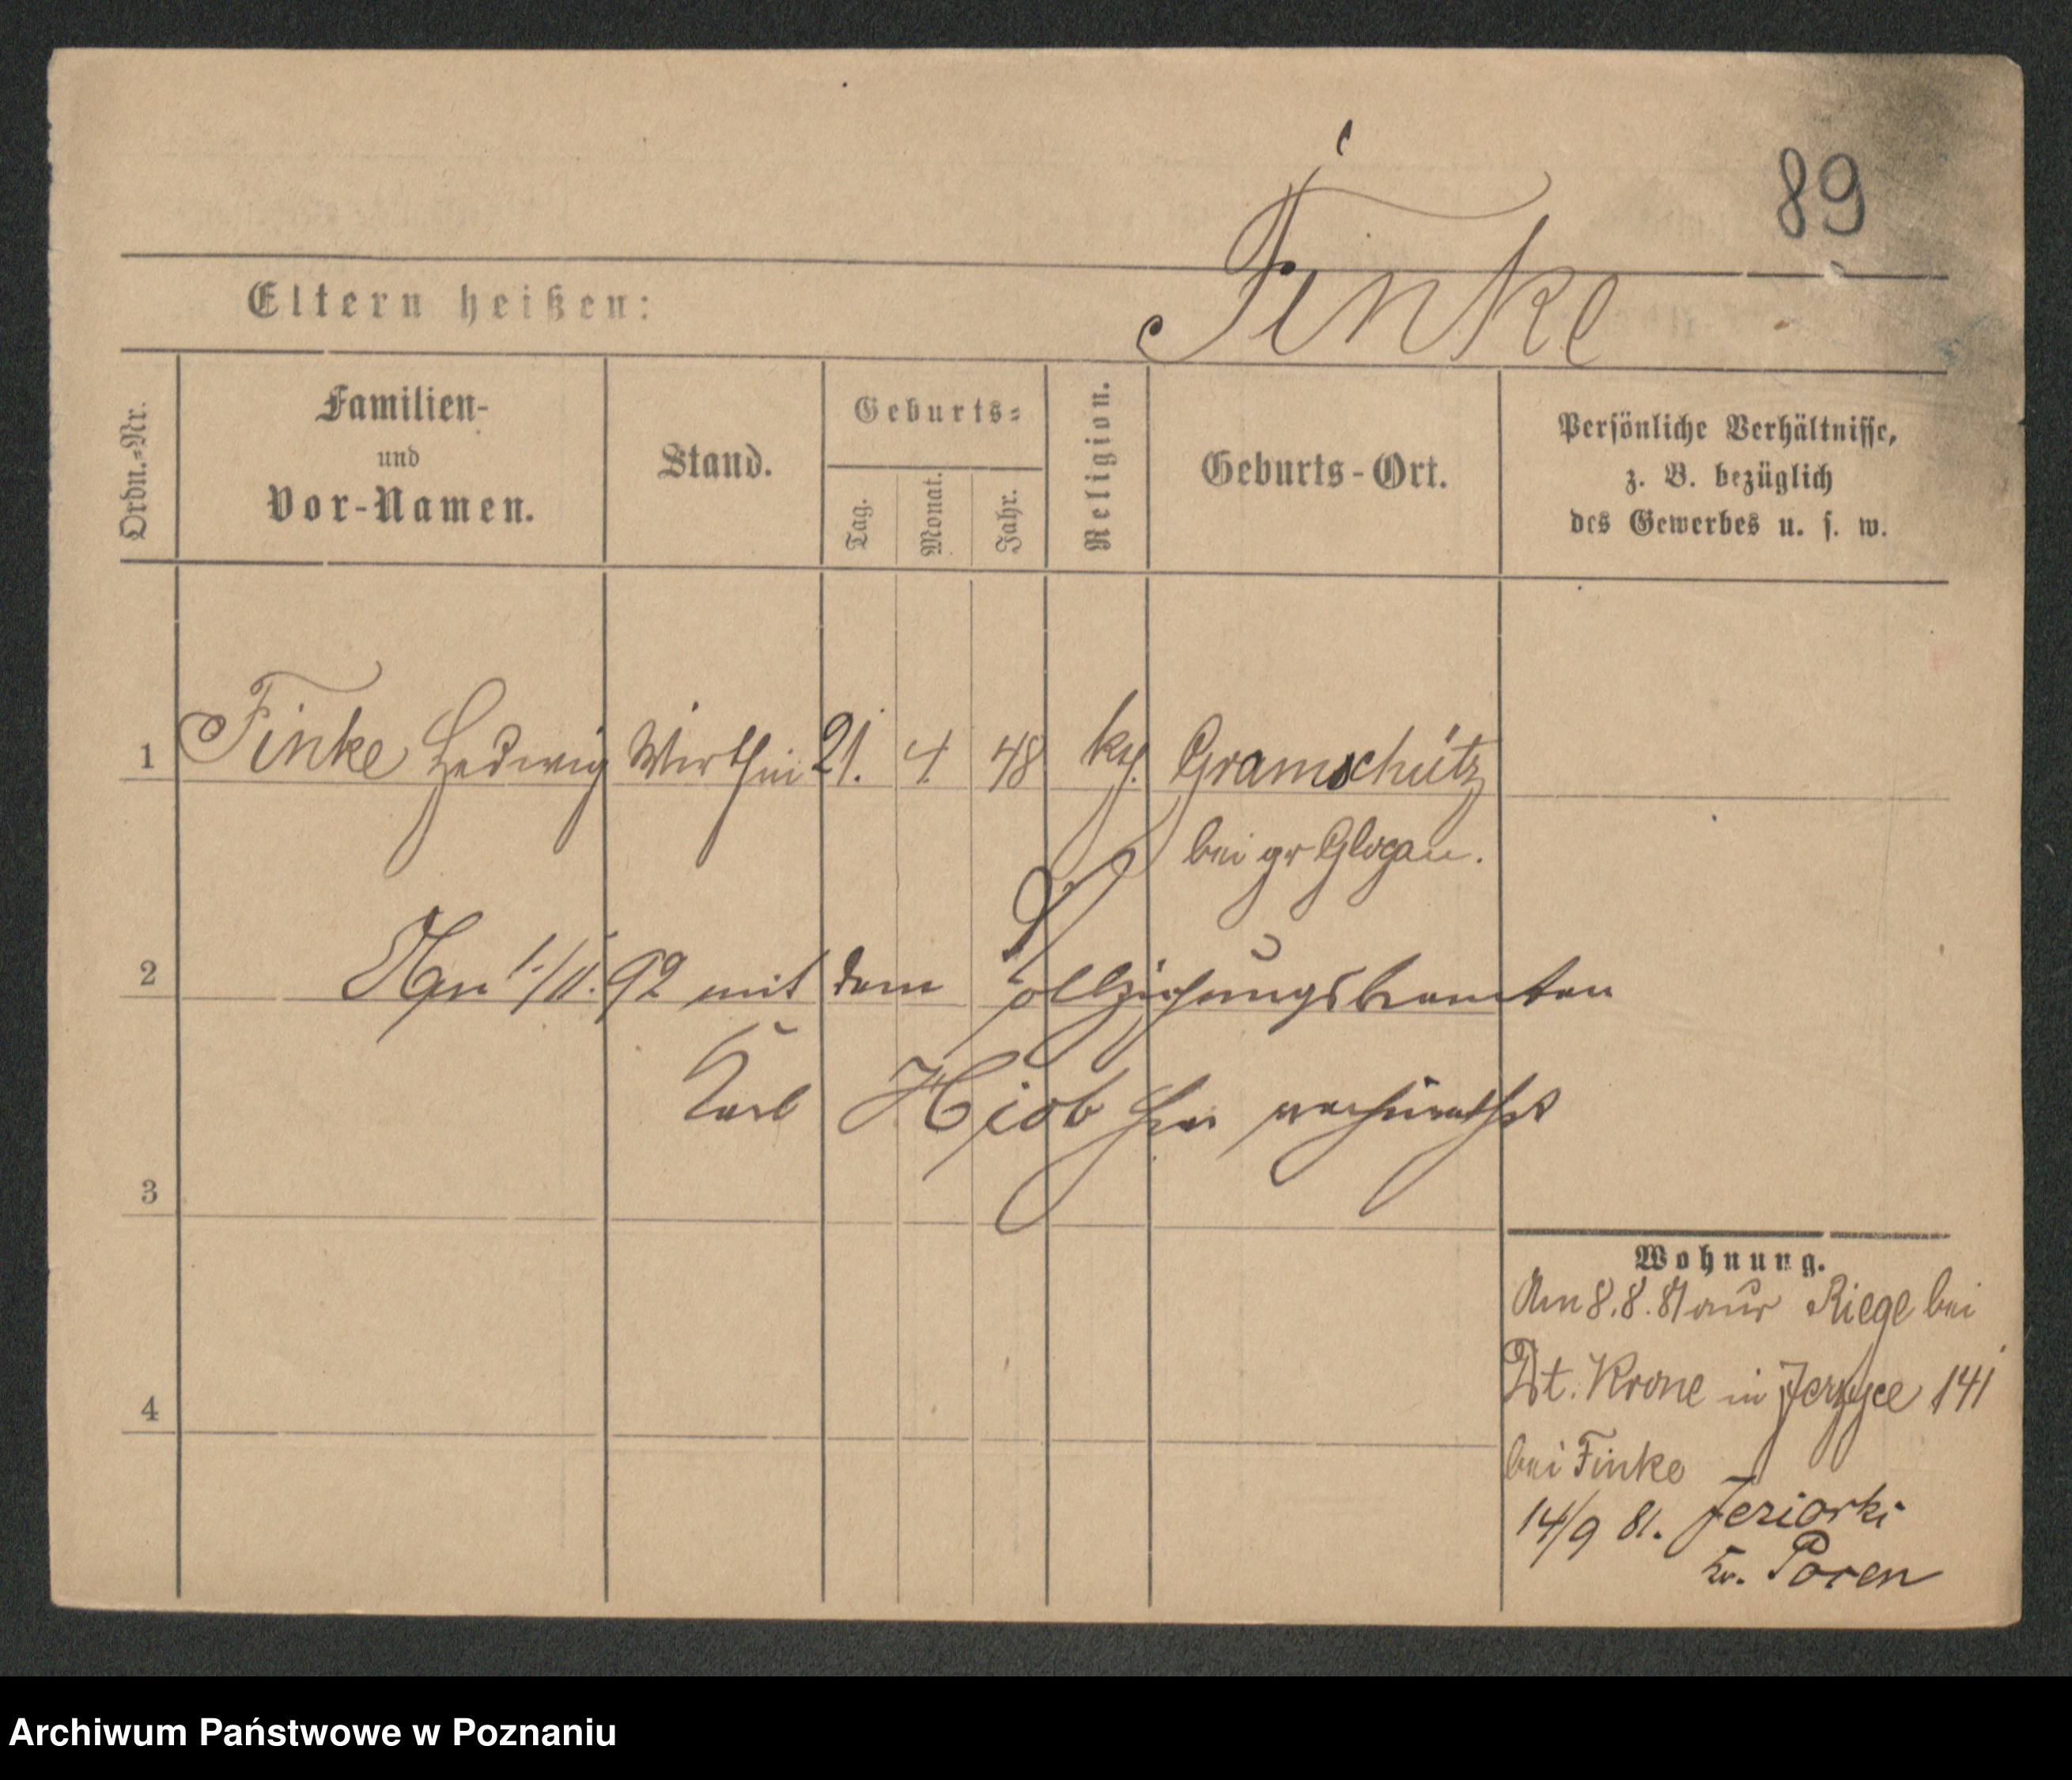 89
Finke
Eltern heißen:
Ordn.-Nr.
Familien-
und
Vor-Namen.
Stand.
Geburts-
Tag.
Monat.
Jahr.
Religion.
Geburts-Ort.
Persönliche Verhältnisse,
z. B. bezüglich
des Gewerbes u. s. w.
1 Finke Hedwig Wirthin 21. 4. 48 Gramschütz
bei gr Glogau.
2 Am 1/11. 92 mit dem Vollziehungsbeamten
Karl Hiob hier verheirathet
3
4
Wohnung.
Am 8.8.81 aus Riege bei
Dt. Krone in Jerzyce 141
bei Finke
14/9 81. Jeziorki
Kr. Posen
Archiwum Państwowe w Poznaniu